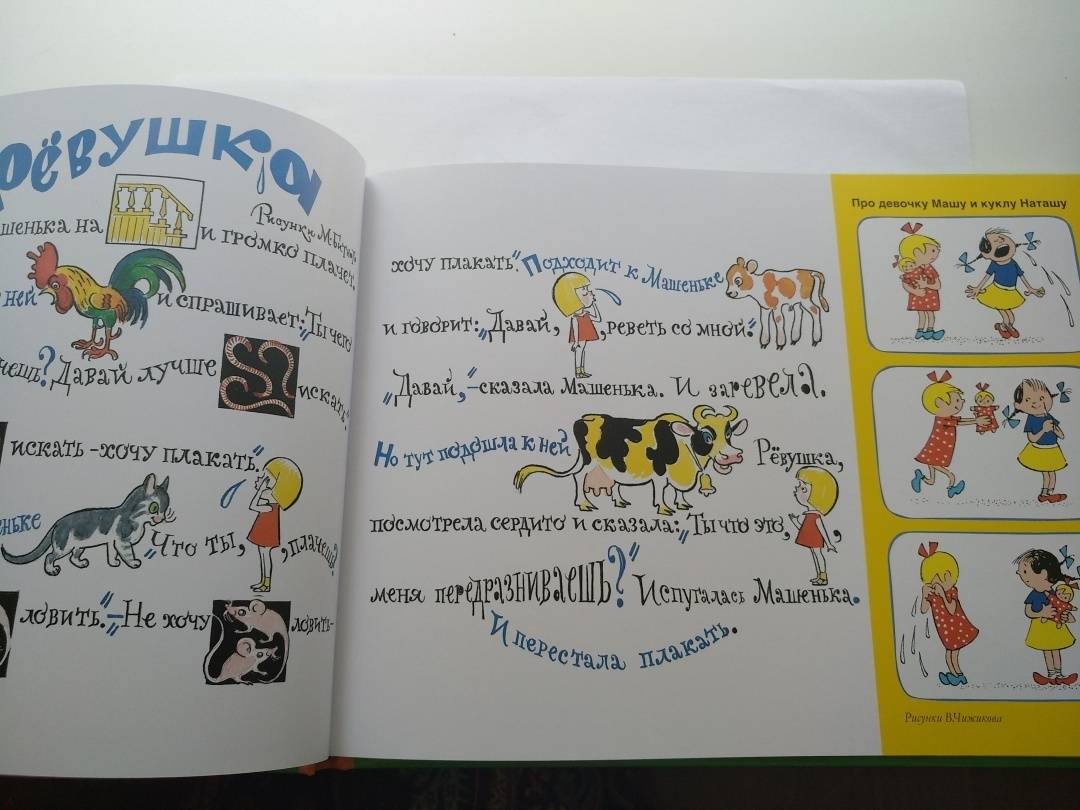 РЁВУШКА
Рисунки М. Битного
шенька на и громко плачет.
ней и спрашивает: „Ты чего
Давай лучше искать."
искать - хочу плакать".
„Что ты, , плачешь?
ловить." – Не хочу ловить -
хочу плакать". Подходит к Машеньке
и говорит: „Давай, , реветь со мной."
„Давай," – сказала Машенька. И заревела.
Но тут подошла к ней Рёвушка,
посмотрела сердито и сказала: „Ты что это, ,
меня передразниваешь?" Испугалась Машенька.
И перестала плакать.
Про девочку Машу и куклу Наташу
Рисунки В.Чижикова